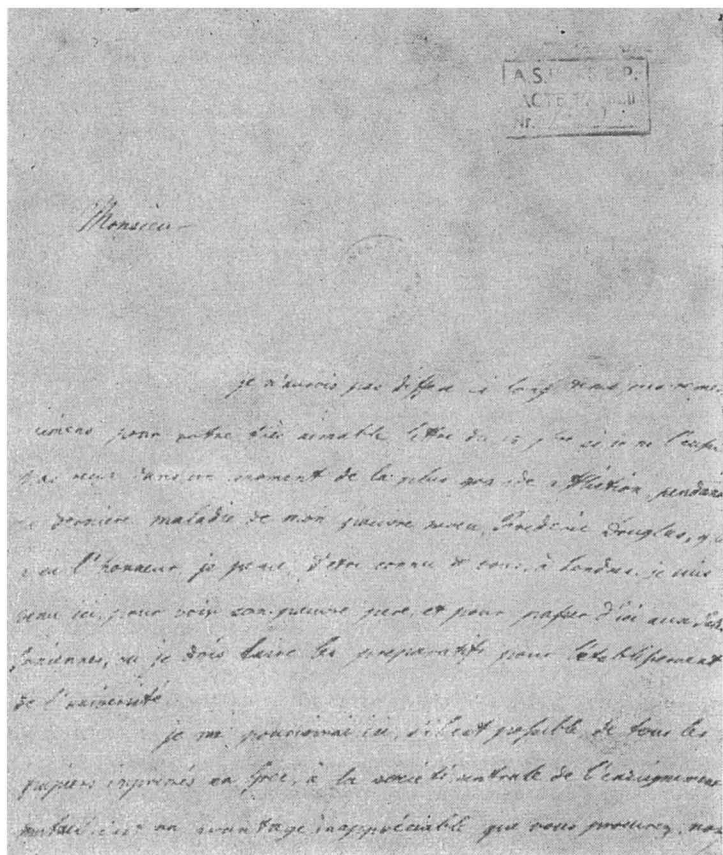 A.S.
ACTE
Nr.
Monsieur
je n'aurois pas differé si long tems, mes remer
cimens pour votre très aimable lettre du si je ne l'eusse
pas reçue dans un moment de la plus grande affliction, pendant
la derniere maladie de mon pauvre neveu, Frederic Douglas, qui
a eu l'honneur, je pense, d'etre connu de vous, à Londres. je suis
venu ici, pour voir son pauvre pere, et pour passer d'ici aux Isles
Ioniennes, ou je dois faire les preparatifs pour l'etablissement
de l'université
je me pourvoirai ici, s'il est possible, de tous les
papiers imprimés en Grec, à la societé centrale de l'enseignement
mutuel. c'est un avantage inappréciable que vous procurez, non